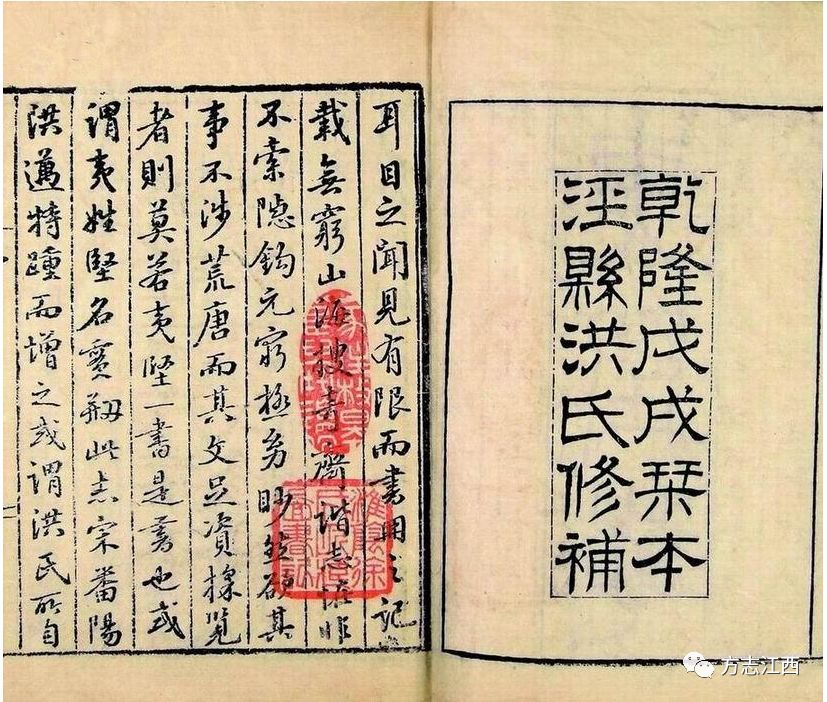 乾隆戊戌栞本
涇縣洪氏修補
耳目之聞見有限而書冊之記
載無窮山海搜奇齊諧志怪非
不索隐鈎元窮極窈眇然欲其
事不涉荒唐而其文足資採覽
者則莫若夷堅一書是書也或
謂夷姓堅名實剏此志宋蕃陽
洪邁特踵而增之或謂洪氏所自
方志江西